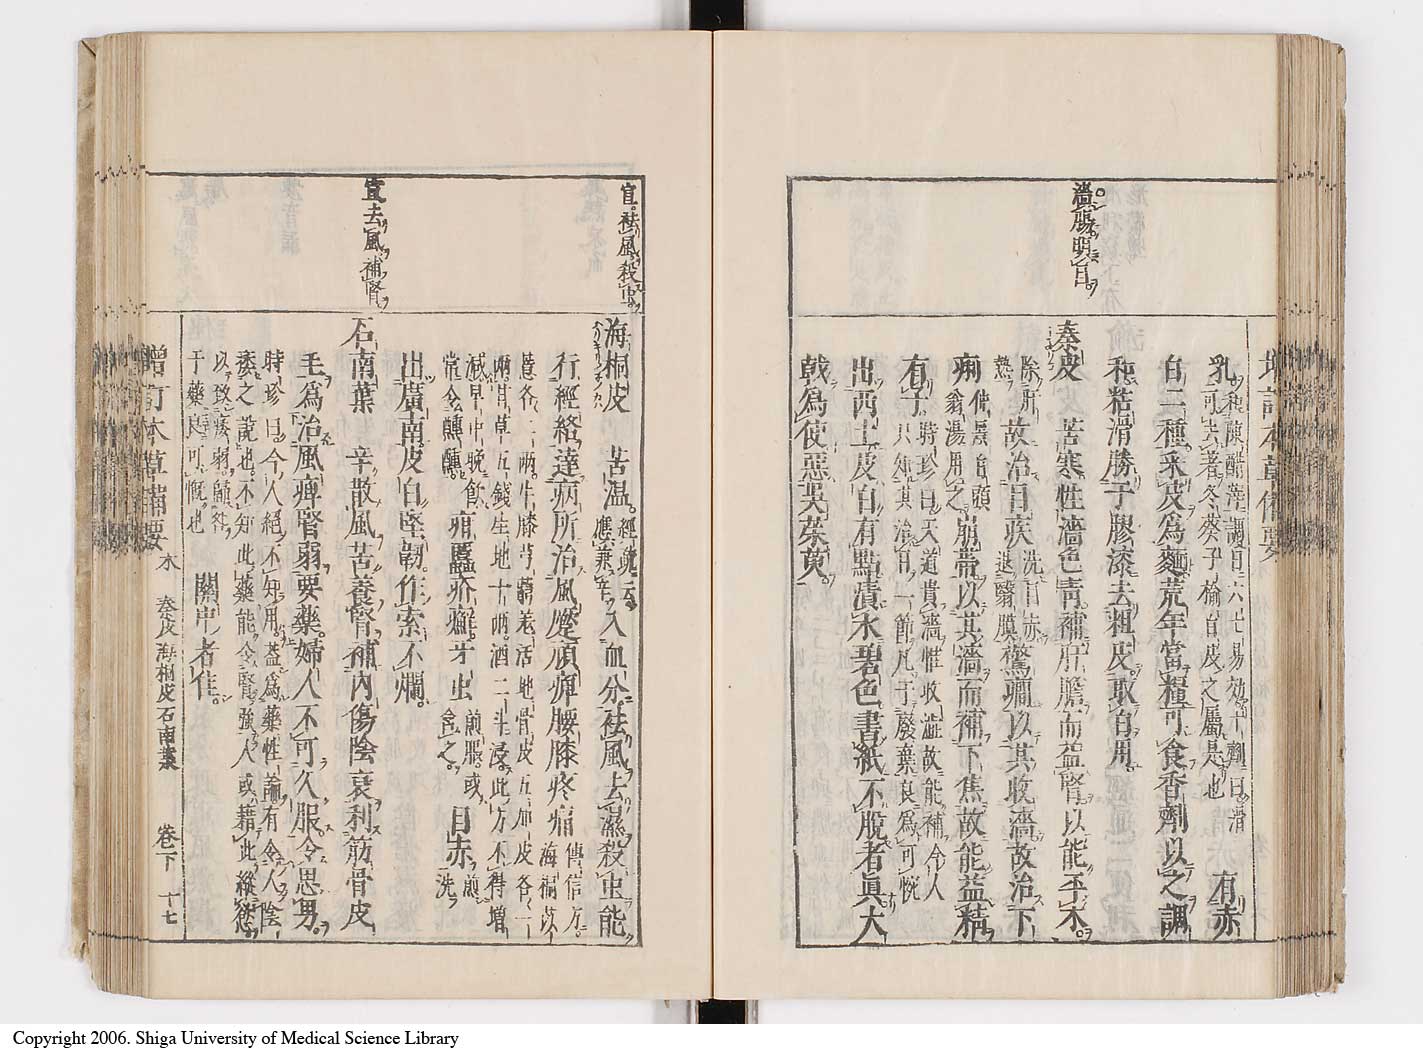 濇膓明目
乳和陳醋薑調日六七易效十劑曰滑
可共著冬葵子榆白皮之屬是也 有赤
白二種采皮爲麵荒年當糧可食香劑以之調
和粘滑勝于膠漆去粗皮取白用
秦皮 苦寒性濇色靑補肝膽而益腎以能平木
除肝熱故治目疾洗目赤退翳膜驚癎以其收濇故治下
痢仲景白頭翁湯用之崩帶以其濇而補下焦故能益精
有子時珍曰天道貴濇惟收澁故能補今人只知其治目一節凡于廢棄良爲可惋
出西土皮白有點漬水碧色書紙不脫者眞大
戟爲使惡吳茱萸
宜祛風殺虫
海桐皮 苦溫經驗云應兼辛入血分祛風去濕殺虫能
行經絡達病所治風蹷頑痺腰膝疼痛傳信方海桐苡
薏各二兩牛膝芎藭羌活地骨皮五加皮各一
兩甘草五錢生地十兩酒二斗浸此方不得增
減早中晚飲常令醺醺疳䘌疥癬牙虫煎服或含之目赤煎洗
出廣南皮白堅韌作索不爛
宜去風補腎
石南葉 辛散風苦養腎補內傷陰衰利筋骨皮
毛爲治風痺腎弱要藥婦人不可久服令思男
時珍曰今人絕不知用蓋爲藥性論有令人陰
痿之說也不知此藥能令腎強人或藉此縱慾
以致痿弱歸咎于藥良可慨也 關中者佳
增訂本草備要 木 秦皮海桐皮石南葉 卷下 十七
Copyright 2006. Shiga University of Medical Science Library